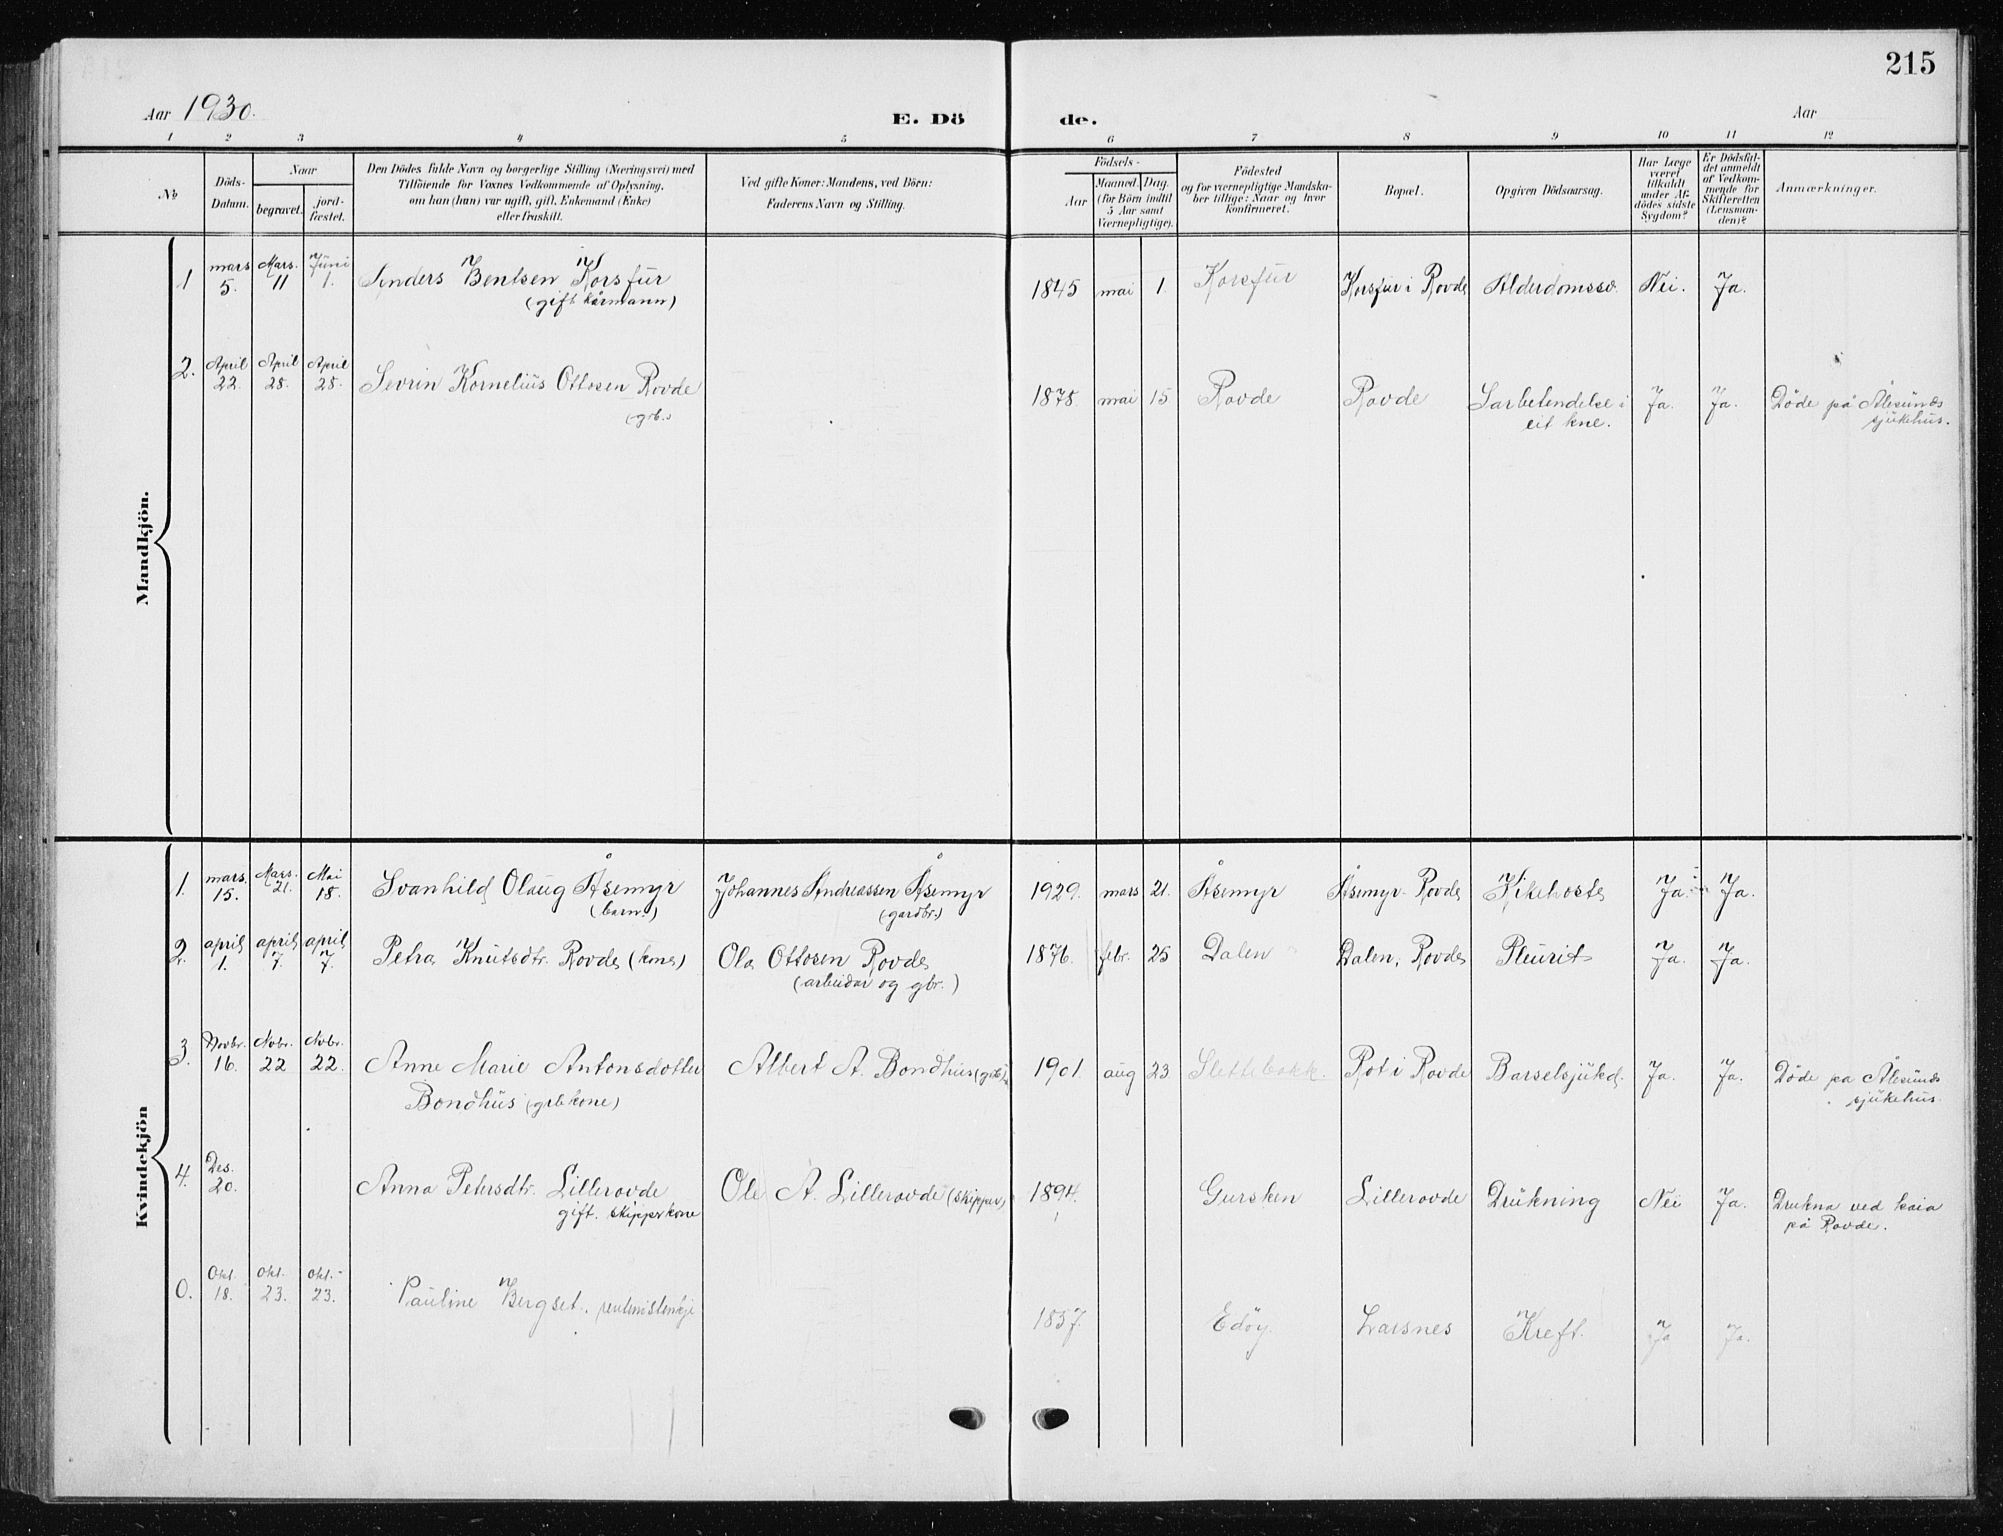 215
Aar 1930. E. Dö de. Aar
1 2 3 4 5 6 7 8 9 10 11 12
No
Döds-Datum.
Naar
begravet.
jord-fæstet.
Den Dödes fulde Navn og borgerlige Stilling (Næringsvei) med
Tilföiende for Voxnes Vedkommende af Oplysning,
om han (hun) var ugift, gift, Enkemand (Enke)
eller fraskilt.
Ved gifte Koner: Mandens, ved Börn:
Faderens Navn og Stilling.
Födsels-
Aar
Maaned. Dag.
(for Börn indtil
5 Aar samt
Værnepligtige).
Födested
og for værnepligtige Mandska-
ber tillige: Naar og hvor
konfirmeret.
Bopæl.
Opgiven Dödsaarsag.
Har Læge
været
tilkaldt
under Af-
dödes sidste
Sygdom?
Er Dödsfal-
det anmeldt
af Vedkom-
mende for
Skifteretten
(Lensman-
den)?
Anmærkninger.
Mandkjön.
1 mars 5. Mars. 11 Juni 1. Anders Bentsen Korsfur 1845 mai 1. Korsfur Korsfur i Rovde Alderdomssv. Nei. Ja.
(gift kårmann)
2. April 22. April 28. April 28. Sevrin Kornelius Ottosen Rovde 1878. mai 15 Rovde Rovde Sarbetendelse i Ja. Ja. Döde på Ålesunds
(grb.) eit kne. sjukehus.
Kvindekjön
1. mars. 15. Mars. 21. Mai 18. Svanhild Olaug Åsemyr Johannes Andreassen Åsemyr 1929. mars 21. Åsemyr Åsemyr Rovde Kikehoste Ja. Ja.
(barn.) (gardbr.)
2. april 1. april 7. april 7. Petra Knutsdtr. Rovde (kone) Ola Ottosen Rovde 1876. febr. 25 Dalen Dalen, Rovde Pleurit Ja. Ja.
(arbeidar og gbr.)
3. Novbr. 16. Nvbr. 22 Nvbr. 22. Anne Marie Antonsdotter Albert A. Bondhus (grb) 1901 aug 23 Slettebakk. Rot i Rovde Barselsjukd. Ja. Ja. Döde pa Ålesunds
Bondhus (grb kone) sjukehus.
4. Des. 20. Anna Petersdtr. Lillerovde Ole A. Lillerovde (skipper) 1894. Gursken Lillerovde Drukning Nei Ja. Drukna ved kaia
gift. skipperkone på Rovde.
0. Okt. 18. okt. 23. okt. 23. Pauline Bergset. 1857. Edöy. Larsnes Kreft. Ja Ja.